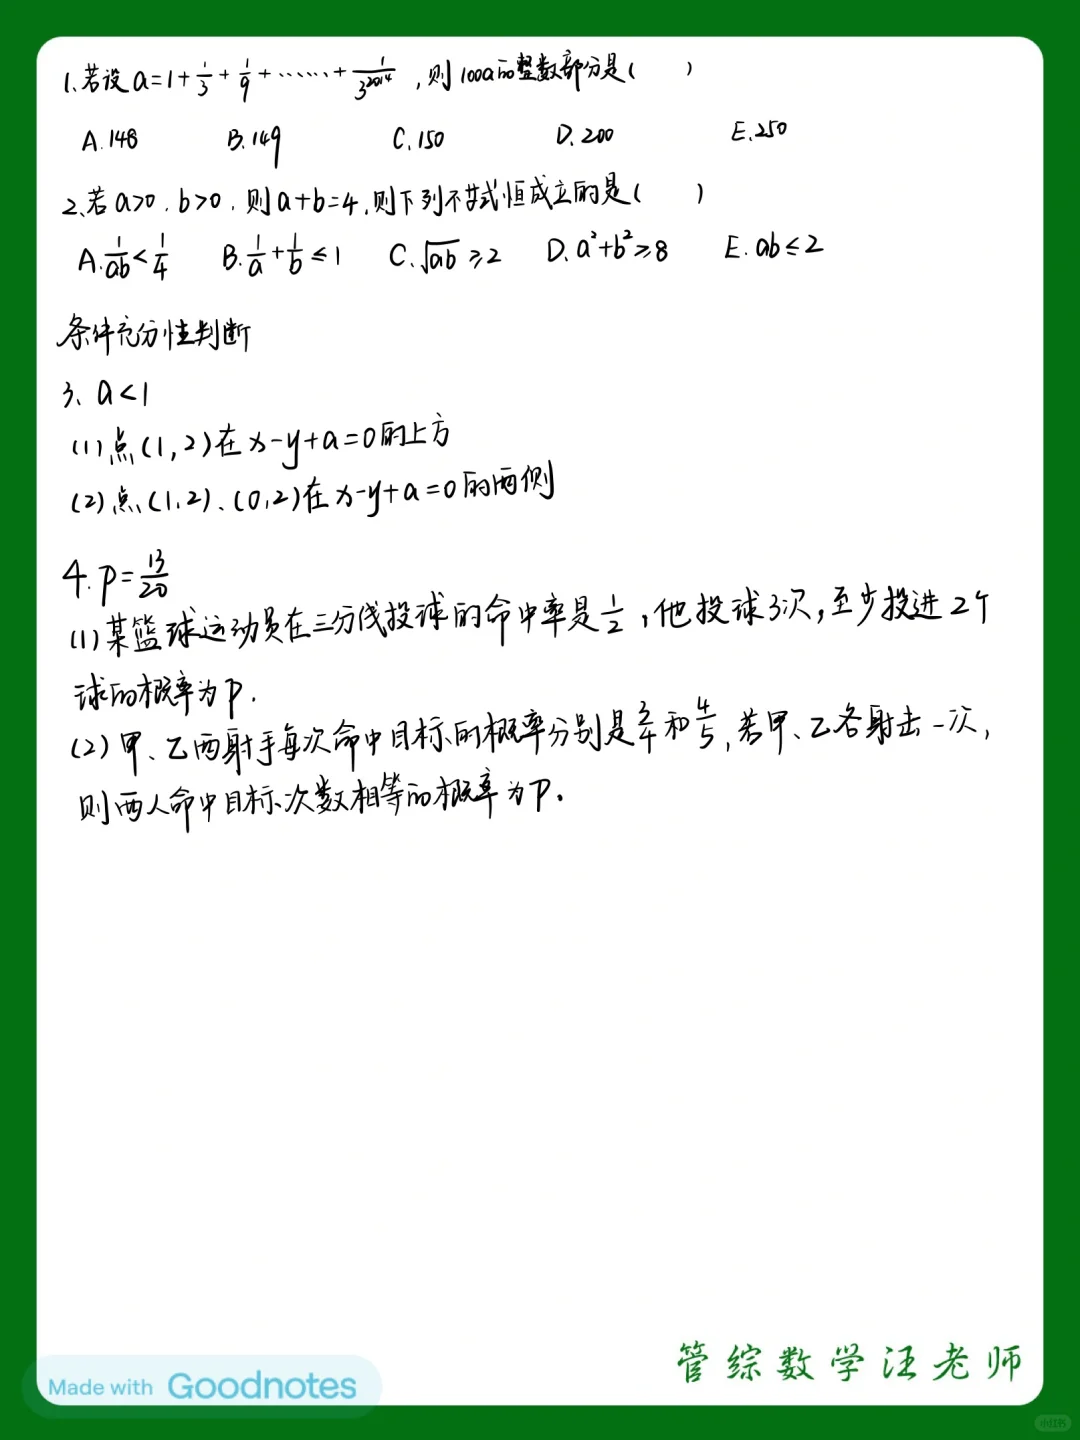 1、若设a=1+1/3+1/9+……+1/3^2014,则100a的整数部分是(  )
A.148 B.149 C.150 D.200 E.250
2、若a>0,b>0,则a+b=4,则下列不等式恒成立的是(  )
A.1/ab<1/4 B.1/a+1/b≤1 C.√ab≥2 D.a²+b²≥8 E.ab≤2
条件充分性判断
3、a<1
(1)点(1,2)在x-y+a=0的上方
(2)点(1,2)、(0,2)在x-y+a=0的两侧
4.P=13/20
(1)某篮球运动员在三分线投球的命中率是1/2,他投球3次,至少投进2个
球的概率为P.
(2)甲、乙两射手每次命中目标的概率分别是3/4和4/5,若甲、乙各射击一次,
则两人命中目标次数相等的概率为P.
管综数学汪老师
Made with Goodnotes
小红书